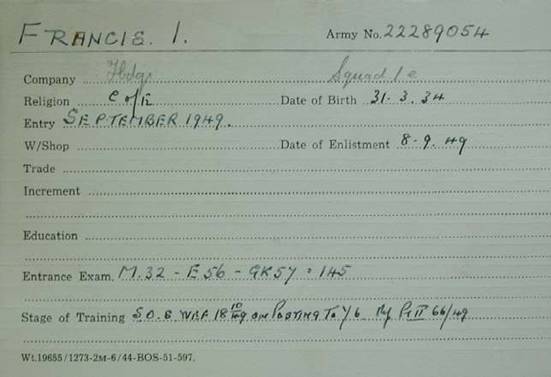 FRANCIS. I. Army No. 22289054
Company Hdqs Squad 1 e
Religion C of E Date of Birth 31. 3. 34
Entry SEPTEMBER 1949.
W/Shop Date of Enlistment 8-9. 49
Trade
Increment
Education
Entrance Exam. M.32 - E 56 - GK57 = 145
Stage of Training S.O.S W.E.F 18 10/49 on POSTING To Pt II 66/49
Wt.19655/1273-2M-6/44-BOS-51-597.